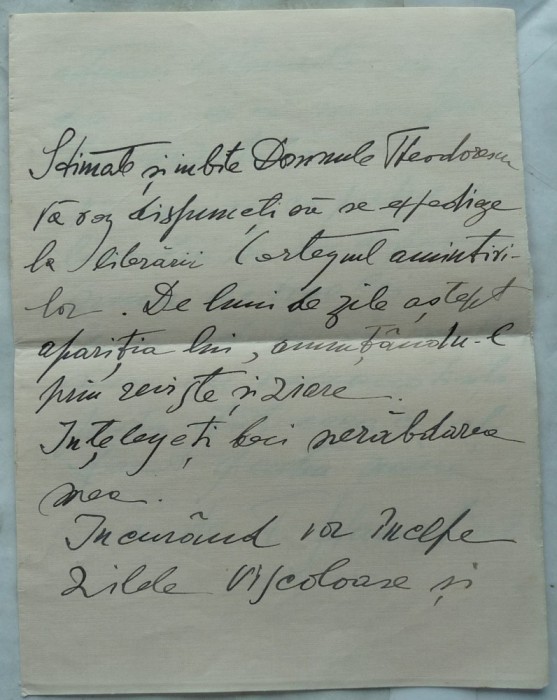 Stimate și iubite Domnule Theodorescu
Vă rog dispuneți să se expedieze
la librării Cortegiul amintiri-
lor. De luni de zile aștept
apariția lui, anunțându-l
prin reviste și ziare.
Înțelegeți deci nerăbdarea
mea.
Incurând vor începe
zilele viscoloase și